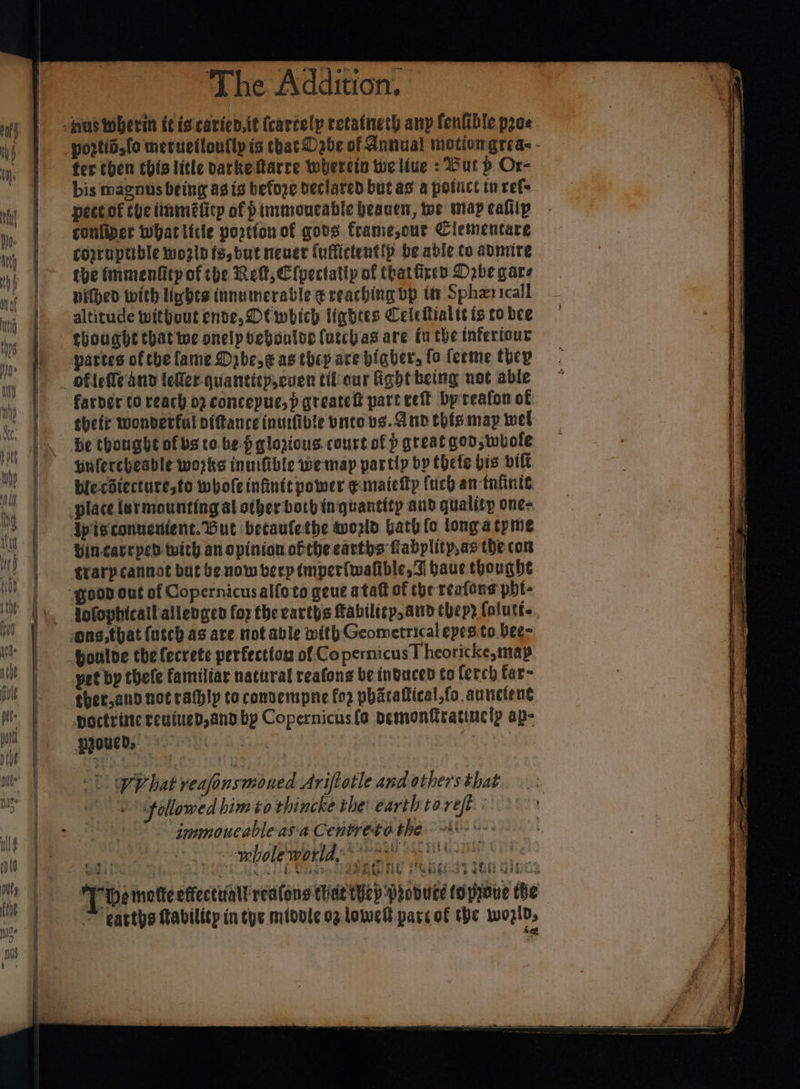 The Addition.
nus wherin it is caried, it scarcely retaineth any sensible pro-
portiō, so merueilously is that Orbe of Annual motion grea-
ter then this litle darke starre wherein we liue : But þ Or-
bis magnus being as is before declared but as a poinct in res-
pect of the immēsity of þ immoueable heauen, we may easily
consider what litle portion of gods frame, our Elementare
corruptible world is, but neuer sufficiently be able to admire
the immensity of the Rest, Especially of that fixed Orbe gar-
nished with lights innumerable & reaching vp in Sphæricall
altitude without ende, Of which lightes Celestial it is to bee
thought that we onely behoulde sutch as are in the inferiour
partes of the same Orbe, & as they are higher, so seeme they
of lesse and lesser quantity, euen til our sight being not able
farder to reach or conceyue, þ greatest part rest by reason of
their wonderful distance inuisible vnto vs. And this may wel
be thought of vs to be þ glorious court of þ great god, whose
vnsercheable works inuisible we may partly by these his visi
ble cōiecture, to whose infinit power & maiesty such an infinit
place surmounting al other both in quantity and quality one-
ly is conuenient. But because the world hath so long a tyme
bin carryed with an opinion of the earths stabylity, as the con
trary cannot but be now very imperswasible, I haue thought
good out of Copernicus also to geue a tast of the reasons phi-
losophicall alledged for the earths stability, and theyr soluti-
ons, that sutch as are not able with Geometrical eyes to bee-
houlde the secrete perfection of Copernicus Theoricke, may
yet by these familiar natural reasons be induced to serch far-
ther, and not rashly to condempne for phātastical, so auncient
doctrine reuiued, and by Copernicus so demonstratiuely ap-
proued.
VVhat reasons moued Aristotle and others that
followed him to thincke the earth to rest
immoueable as a Centre to the
whole world.
The moste effectuall reasons that they produce to proue the
earths stability in the middle or lowest part of the world,